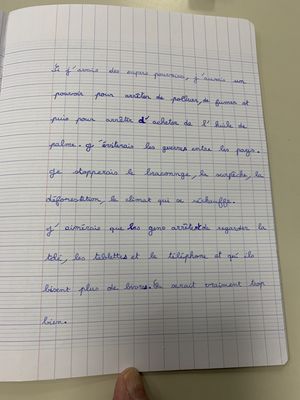 Si j'avais des supers pouvoirs, j'aurais un
pouvoir pour arrêter de polluer, de fumer et
puis pour arrêter d'acheter de l'huile de
palme. J'éviterais les guerres entre les pays.
Je stopperais le braconnage, la surpêche, la
déforestation, le climat qui se réchauffe.
J'aimerais que les gens arrêtent de regarder la
télé, les tablettes et le téléphone et qu'ils
lisent plus de livres. Ce serait vraiment trop
bien.